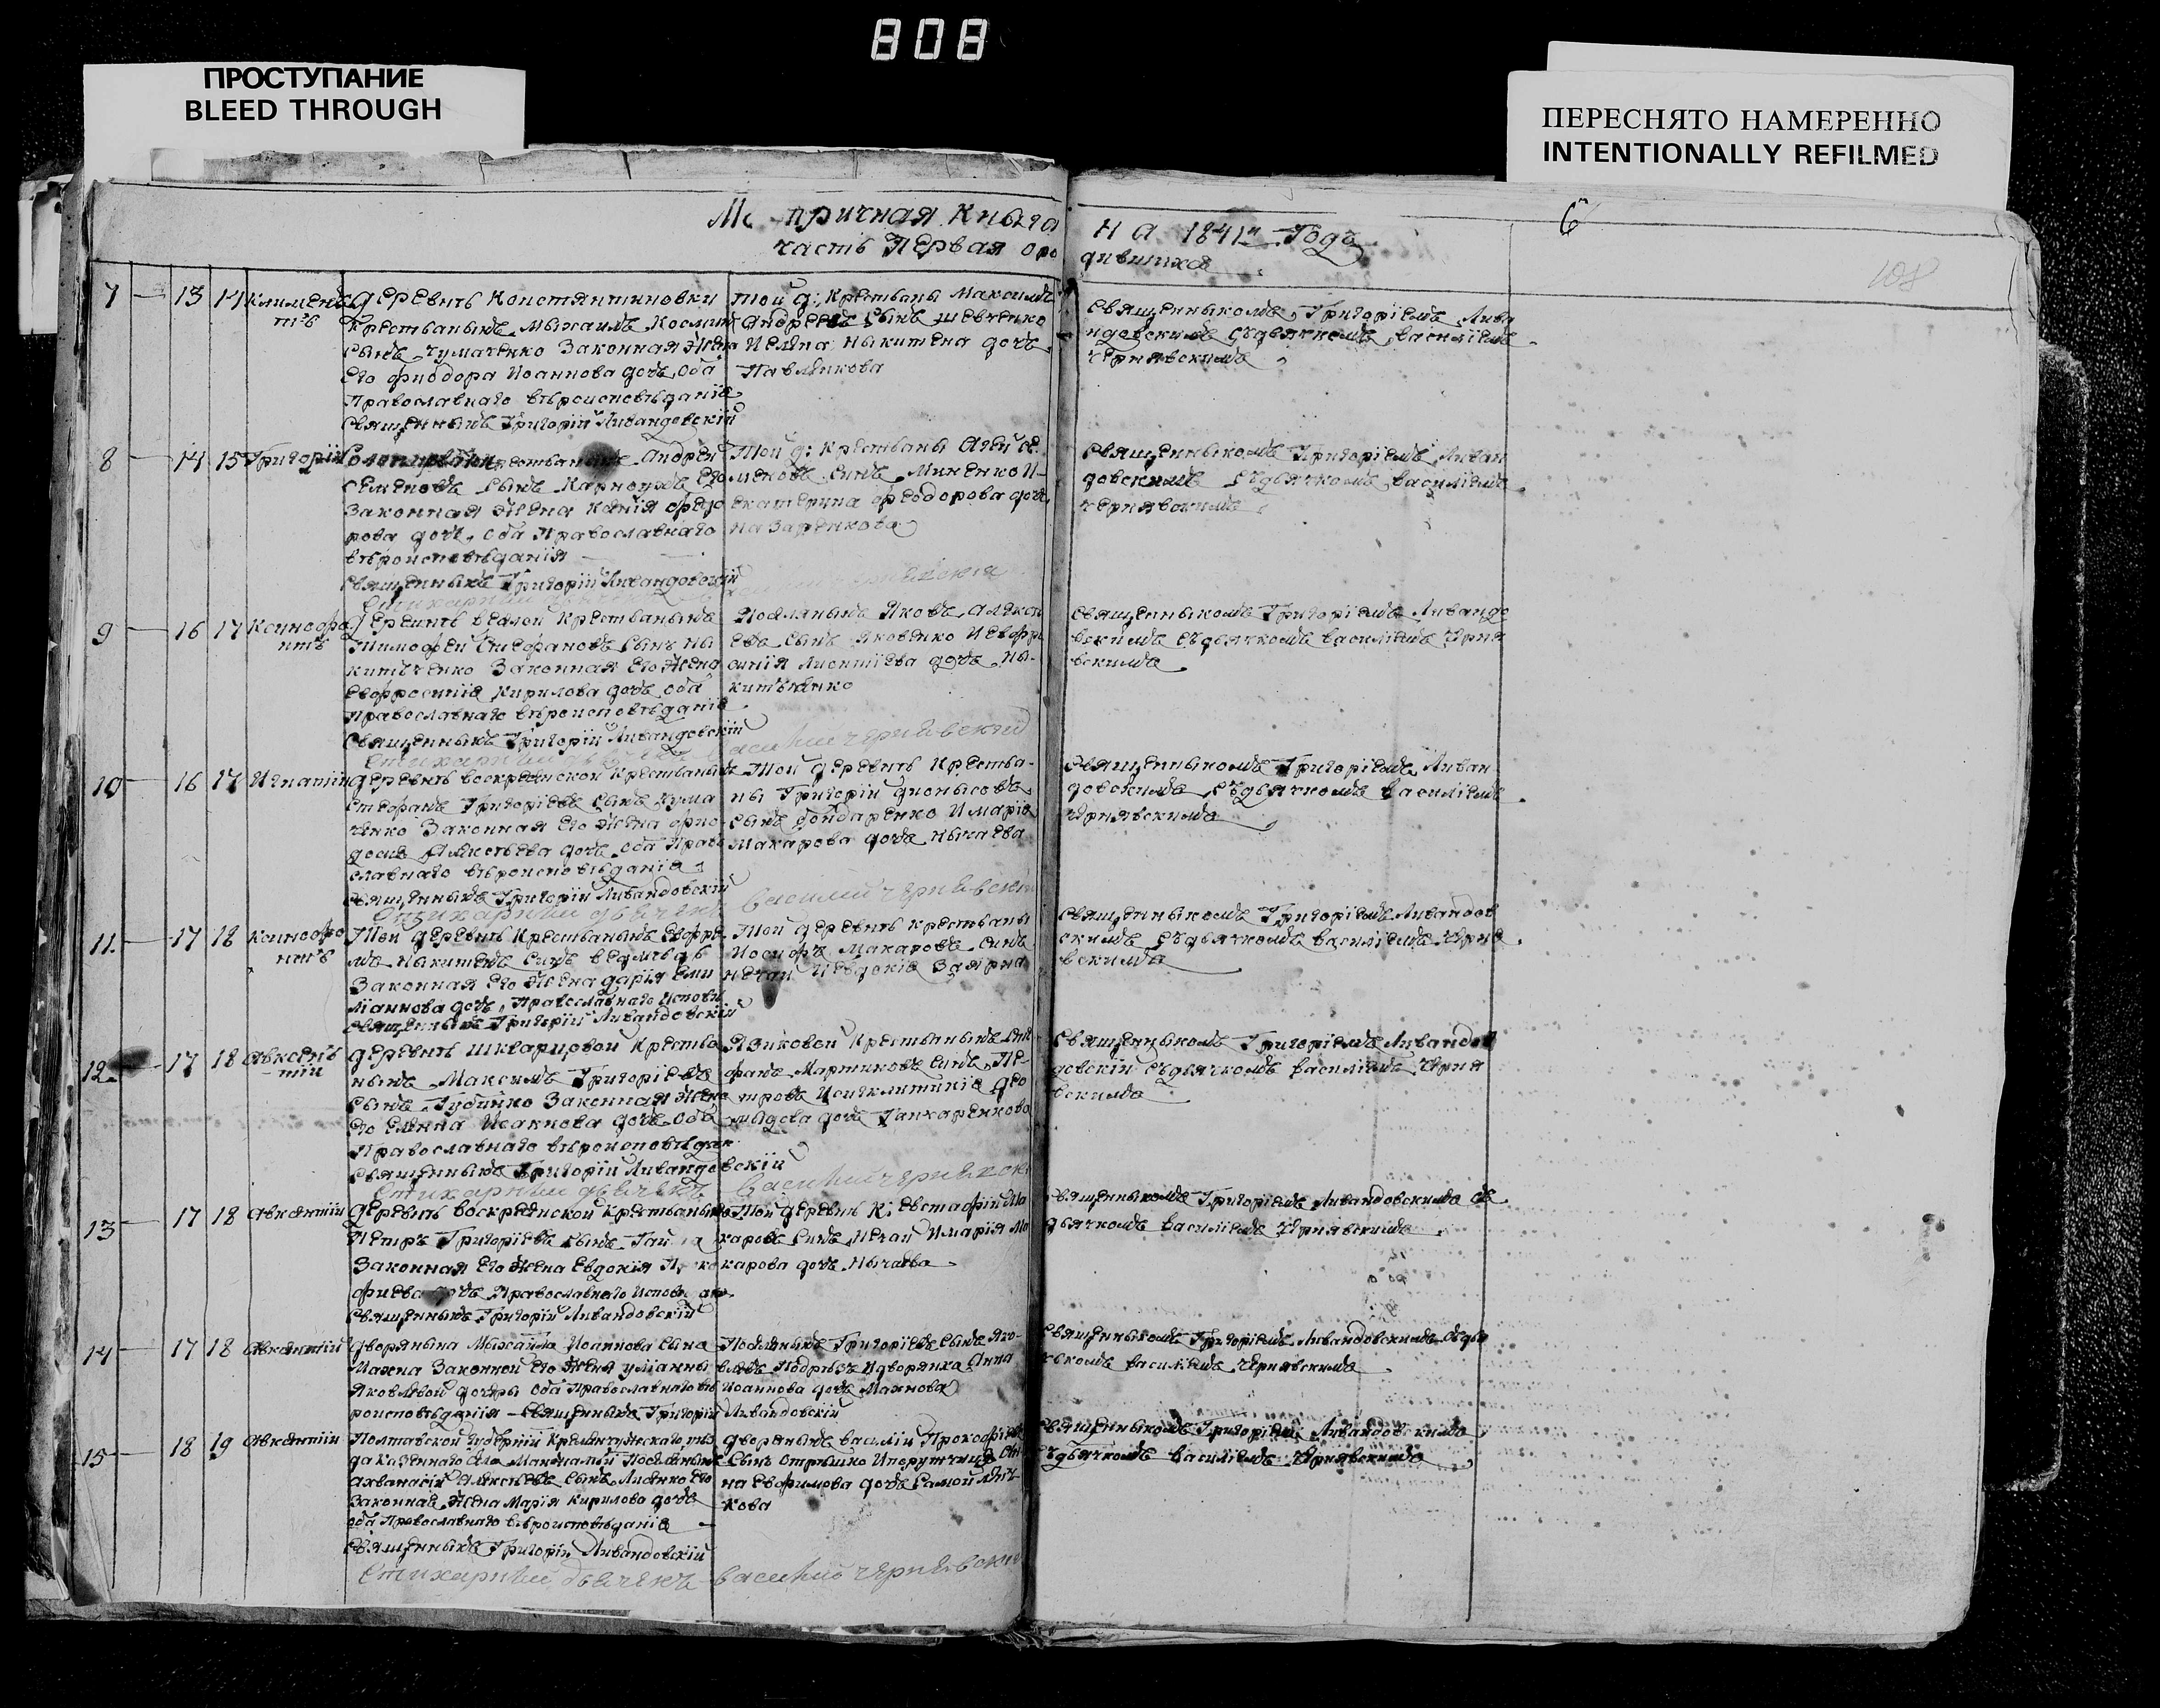 808
ПРОСТУПАНИЕ
BLEED THROUGH
ПЕРЕСНЯТО НАМЕРЕННО
INTENTIONALLY REFILMED
6
108
Ме тричная Книга
часть Первая о ро
на 1841й Годъ
дившихся
7 13 14 Климен
тъ
деревнѣ Константиновки
Крестьянынъ Мыхаилъ Космин
Сынъ Чумаченко Законная Жена
Его Фиодора Иоаннова дочь оба
Православнаго вѣроисповѣданія
Священныкъ Григорій Ливандовскій
той д: Крестьяны Максимъ
Андреевъ Сынъ Шевченко
И Елена Никитена дочь
Павленкова
Священныкомъ Григоріемъ Лива
ндовскимъ съ дьячкомъ Василіемъ
Чернявскимъ
8 14 15 Григорій
Андрей
Семеновъ Сынъ Карноухъ Его
Законная Жена Ксенія Федо
рова дочь оба Православнаго
вѣроисповѣданія
Священныкъ Григорій Ливандовскій
Той д: Крестьяны Алексѣ Се
меновъ Сынъ Миненко И
Екатерина Феодорова дочь
Назаренкова
Священныкомъ Григоріемъ Ливан
довскимъ съ дьячкомъ Василіемъ
Чернявскимъ
9 16 17 Ксенофо
нтъ
Деревнѣ Крестьянынъ
Тимофей Стефановъ Сынъ Ны
китченко Законная Его Жена
Евфросинія Кирилова дочь оба
Православнаго вѣроисповѣданія
Священныкъ Григорій Ливандовскій
Поселянынъ Яковъ Алексѣ
евъ Сынъ Яковенко И Евфро
синія Леонтіева дочь Ны
китченко
Священныкомъ Григоріемъ Ливандо
вскимъ съ дьячкомъ Василіемъ Черня
вскимъ
Василий Чернявский
10 16 17 Игнатій
деревнѣ Воскресенской Крестьянынъ
Стефанъ Григоріевъ Сынъ Чума
ченко Законная Его Жена Фио
досія Алексѣева дочь оба Право
славнаго вѣроисповѣданія
Священныкъ Григорій Ливандовскій
Стихарный дьячекъ Василий Чернявский
Той деревнѣ Крестья
ны Григорій Дионысовъ
Сынъ Бондаренко И Марія
Макарова дочь Нычаева
Священныкомъ Григоріемъ Ливан
довскимъ съ дьячкомъ Василіемъ
Чернявскимъ
11 17 18 Ксенофо
нтъ
Той деревнѣ Крестьянынъ Ефре
мъ Ныкитенъ Сынъ Ведмѣдь
Законная Его Жена Дарія Еми
ліанова дочь Православнаго Исповѣ
Священныкъ Григорій Ливандовскій
Той деревнѣ Крестьяны
Иосифъ Макаровъ Сынъ
Нечай И Евдокія
Священныкомъ Григоріемъ Ливандов
скимъ съ дьячкомъ Василіемъ Черня
вскимъ
12 17 18 Авксен
тій
деревнѣ Шкварцовой Крестья
нынъ Максимъ Григоріевъ
Сынъ Губенко Законная Жена
Его Елена Исакиова дочь оба
Православнаго вѣроисповѣдан
Священныкъ Григорій Ливандовскій
Стихарный дьячекъ Василий Чернявск
Язиковой Крестьянынъ Сте
фанъ Мартиновъ Сынъ Пе
тровъ И Синклитикія Дио
мыдова дочь Гончаренкова
Священныкомъ Григоріемъ Ливандо
довскій съ дьячкомъ Василіемъ Черня
вскимъ
13 17 18 Авксентій
Деревнѣ Воскресенской Крестьянынъ
Петръ Григоріевъ Сынъ
Законная Его Жена Евдокія
фиева дочь Православнаго Исповѣдан
Священныкъ Григорій Ливандовскій
Той деревнѣ К: Евстафій Ма
каровъ Сынъ Нечай И Марія Ма
карова дочь Нычаева
Священныкомъ Григоріемъ Ливандовскимъ съ
дьячкомъ Василіемъ Чернявскимъ
14 17 18 Авксентій
Дворянына Мыхаила Иоаннова Сына
Махна Законной Его Жены Улианны
Яковлевой дочеры оба Православнаго вѣ
роисповѣданія Священныкъ Григорій Ливандовскій
Поселянынъ Григоріевъ Сынъ Яко
влевъ Подрѣзъ И дворянка Анна
Иоаннова дочь Махнова
Священныкомъ Григоріемъ Ливандовскимъ съ дья
чкомъ Василіемъ Чернявскимъ
15 18 19 Авксентій
Полтавской Губерніи Кременчужскаго уѣз
да Казеннаго Села Поселянынъ
Афанасій Алексѣевъ Сынъ Лисенко Его
Законная Жена Марія Кирилова дочь
оба Православнаго вѣроисповѣданія
Священныкъ Григорій Ливандовскій
Стихарный дьячекъ Василий Чернявский
дворянынъ Василій Прокофіевъ
Сынъ Отрешко И порутчица Ан
на Евфимова дочь Самойлич
кова
Священныкомъ Григоріемъ Ливандовскимъ
съ дьячкомъ Василіемъ Чернявскимъ